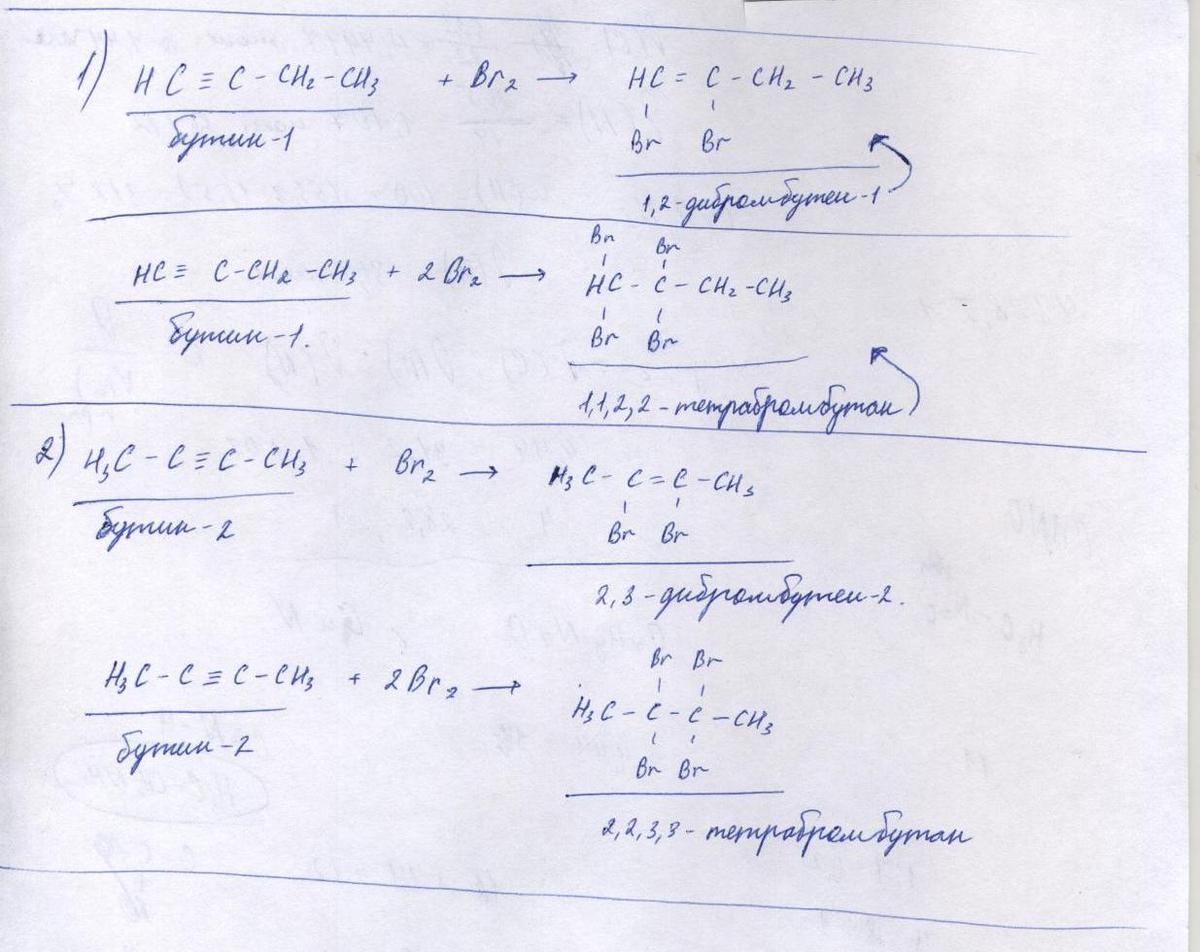 1) HC ≡ C - CH₂ - CH₃ + Br₂ → HC = C - CH₂ - CH₃
Br Br
бутин-1
1,2-дибромбутен-1
Br Br
HC ≡ C - CH₂ - CH₃ + 2Br₂ → HC - C - CH₂ - CH₃
Br Br
бутин-1.
1,1,2,2-тетрабромбутан
2) H₃C - C ≡ C - CH₃ + Br₂ → H₃C - C = C - CH₃
Br Br
бутин-2
2,3-дибромбутен-2.
Br Br
H₃C - C ≡ C - CH₃ + 2Br₂ → H₃C - C - C - CH₃
Br Br
бутин-2
2,2,3,3-тетрабромбутан